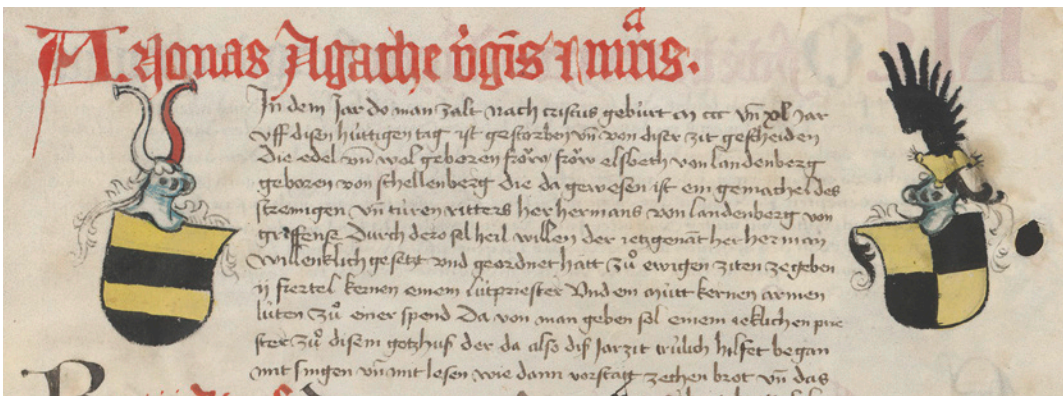 A. Nonas Agathe v̊gīs ⁊ mr̄is.
In dem Jar do man zalt nach cristus gebúrt m ccc vn̄ xl jar
vff disen húttigen tag ist gestorben vn̄ von diser zit gescheiden
Die edel vn̄ wol geboren frŏw frŏw elsbeth von landenberg
geboren von schellenberg die da gewesen ist ein gemachel des
strennigen vn̄ túren ritters her hermans von landenberg von
griffense Durch dero sel heil willen der ietzgenāt her herman
willenklich gesetzt vnd geordnet hatt zů ewigen ziten ze geben
ij fiertel kernen einem lútpriester Vnd ein mútt kernen armen
lúten zů einer spend Da von man geben sol einem ieklichen prie
ster zů disem gotzhus der da also dis Jarzit trúlich hilfet began
mit singen vn̄ mit lesen wie dann vorstatt zechen brot vn̄ das